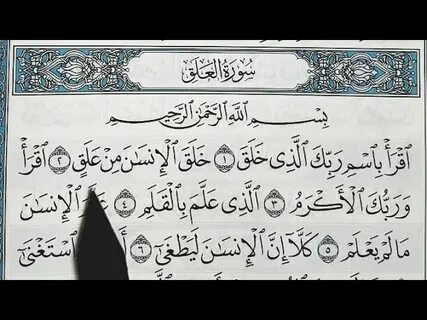 سُورَةُ ٱلْعَلَقِ
بِسْمِ ٱللَّهِ ٱلرَّحْمَٰنِ ٱلرَّحِيمِ
ٱقْرَأْ بِٱسْمِ رَبِّكَ ٱلَّذِى خَلَقَ ١ خَلَقَ ٱلْإِنسَٰنَ مِنْ عَلَقٍ ٢ ٱقْرَأْ
وَرَبُّكَ ٱلْأَكْرَمُ ٣ ٱلَّذِى عَلَّمَ بِٱلْقَلَمِ ٤ ٱلْإِنسَٰنَ
مَا لَمْ يَعْلَمْ ٥ كَلَّآ إِنَّ ٱلْإِنسَٰنَ لَيَطْغَىٰٓ ٦ ٱسْتَغْنَىٰٓ